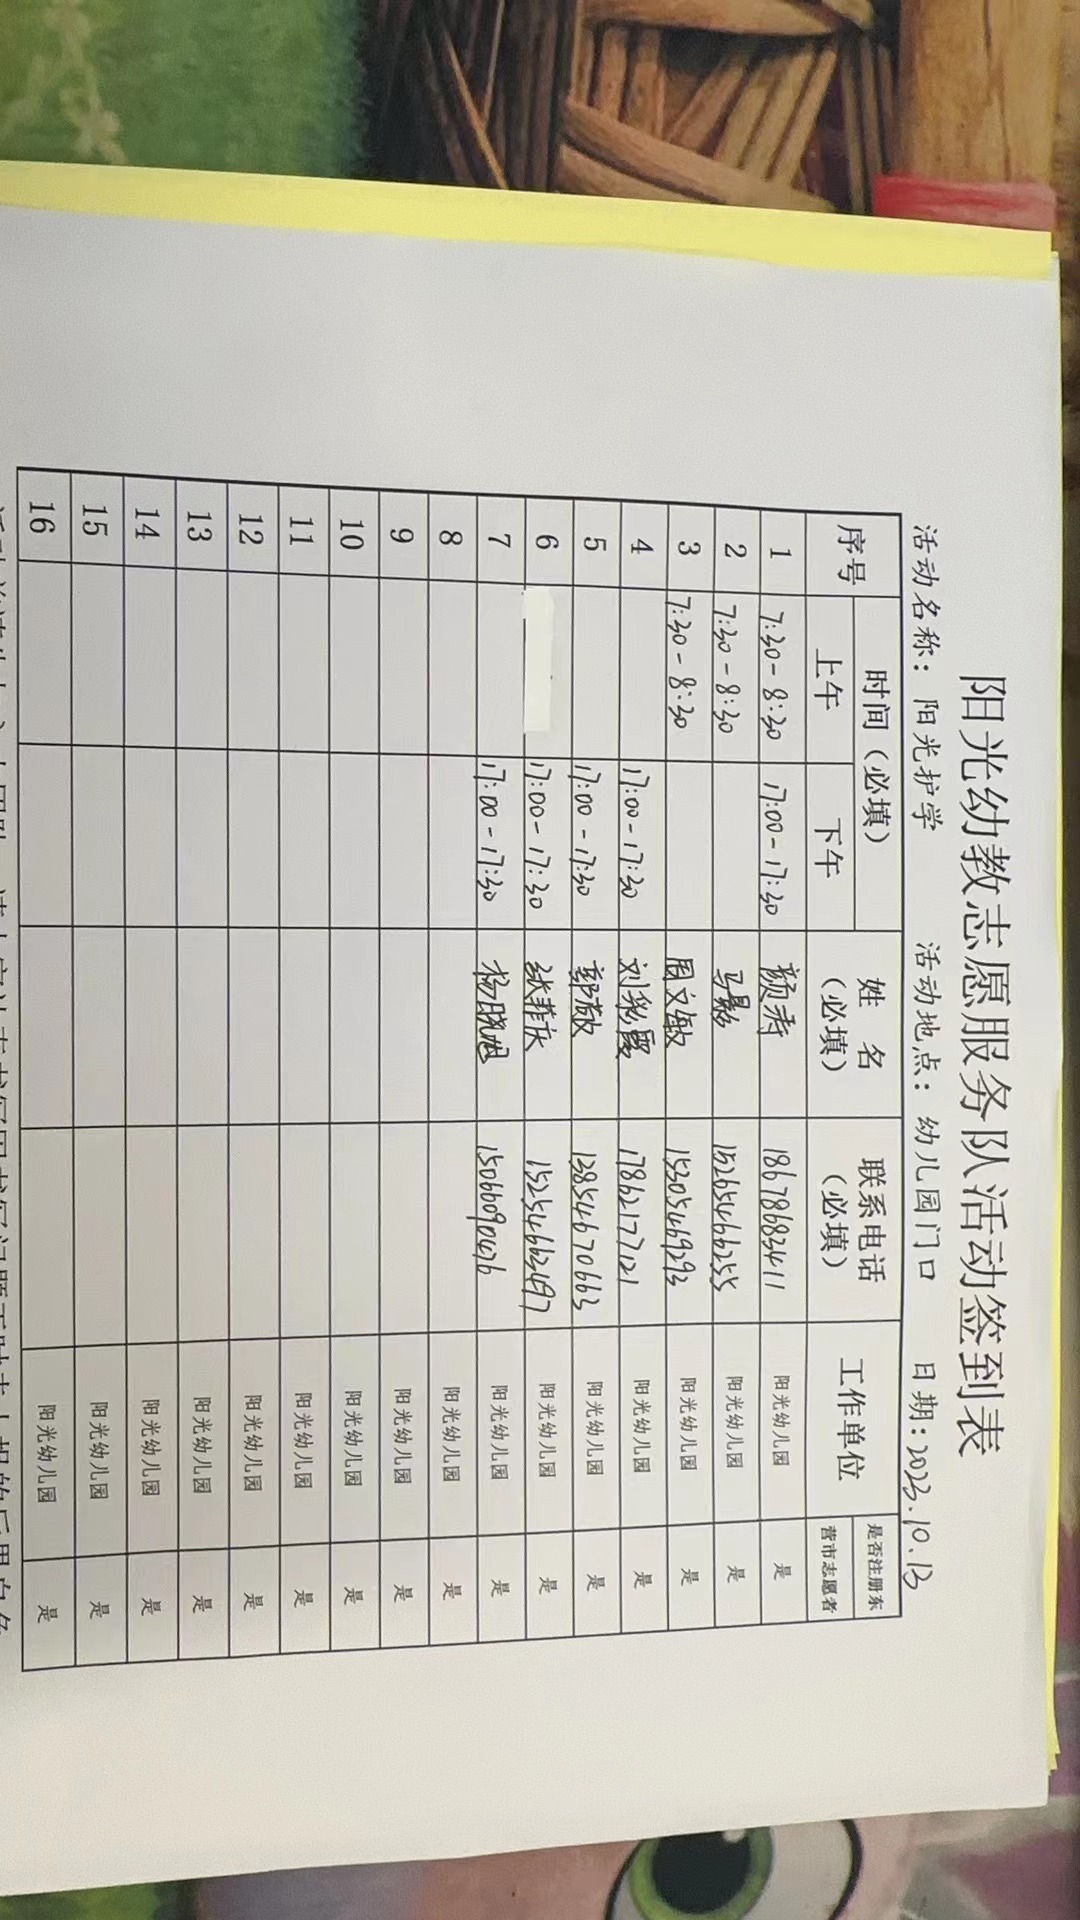 阳光幼教志愿服务队活动签到表
活动名称：阳光护学 活动地点：幼儿园门口 日期：2023.10.13
序号 时间（必填） 姓名（必填） 联系电话（必填） 工作单位 是否注册东营市志愿者
上午 下午
1 7:30-8:30 17:00-17:30 颜秀 18678683411 阳光幼儿园 是
2 7:30-8:30 马 15265466255 阳光幼儿园 是
3 7:30-8:30 周文敏 15305469293 阳光幼儿园 是
4 17:00-17:30 刘 霞 17862177121 阳光幼儿园 是
5 17:00-17:30 郭敏 13854670663 阳光幼儿园 是
6 17:00-17:30 张菲庆 15254663497 阳光幼儿园 是
7 17:00-17:30 杨晓旭 15066090476 阳光幼儿园 是
8 阳光幼儿园 是
9 阳光幼儿园 是
10 阳光幼儿园 是
11 阳光幼儿园 是
12 阳光幼儿园 是
13 阳光幼儿园 是
14 阳光幼儿园 是
15 阳光幼儿园 是
16 阳光幼儿园 是